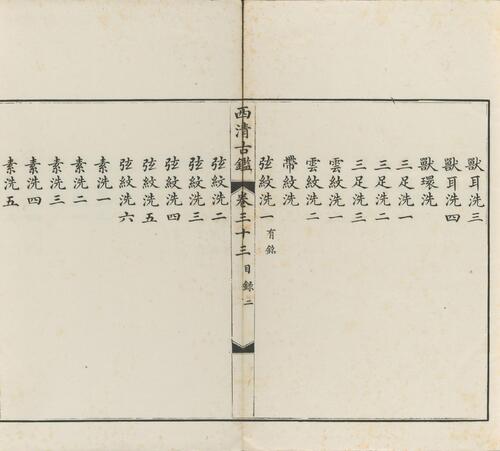 獸耳洗三
獸耳洗四
獸環洗
三足洗一
三足洗二
三足洗三
雲紋洗一
雲紋洗二
帶紋洗
弦紋洗一 有銘
西清古鑑 卷三十三 目錄 二
弦紋洗二
弦紋洗三
弦紋洗四
弦紋洗五
弦紋洗六
素洗一
素洗二
素洗三
素洗四
素洗五